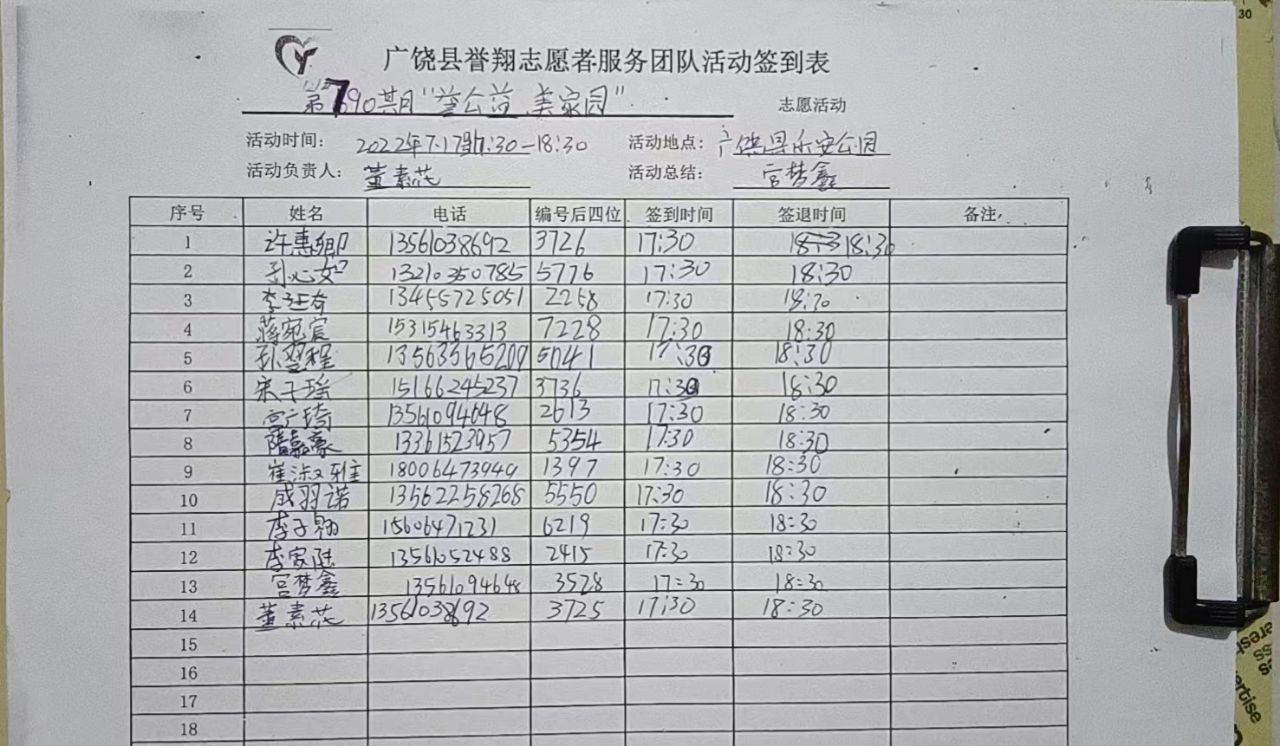 广饶县誉翔志愿者服务团队活动签到表
第790期"誉公益 美家园" 志愿活动
活动时间: 2022年7.17 17:30-18:30 活动地点: 广饶县乐安公园
活动负责人: 董素花 活动总结: 宫梦鑫
序号 姓名 电话 编号后四位 签到时间 签退时间 备注
1 许惠卿 13561038692 3726 17:30 18:30
2 孙心如 13210350785 5776 17:30 18:30
3 13455725051 2258 17:30 18:30
4 蒋宛宸 15315463313 7228 17:30 18:30
5 13563365209 5041 17:30 18:30
6 宋子瑶 15166245237 3736 17:30 18:30
7 13561094648 2613 17:30 18:30
8 隋嘉豪 13361523957 5354 17:30 18:30
9 崔淑雅 18006473949 1397 17:30 18:30
10 成羽诺 13562258268 5550 17:30 18:30
11 李子翔 15606471231 6219 17:30 18:30
12 李家陆 13561052488 2415 17:30 18:30
13 宫梦鑫 13561094648 3528 17:30 18:30
14 董素花 13561038692 3725 17:30 18:30
15
16
17
18
30